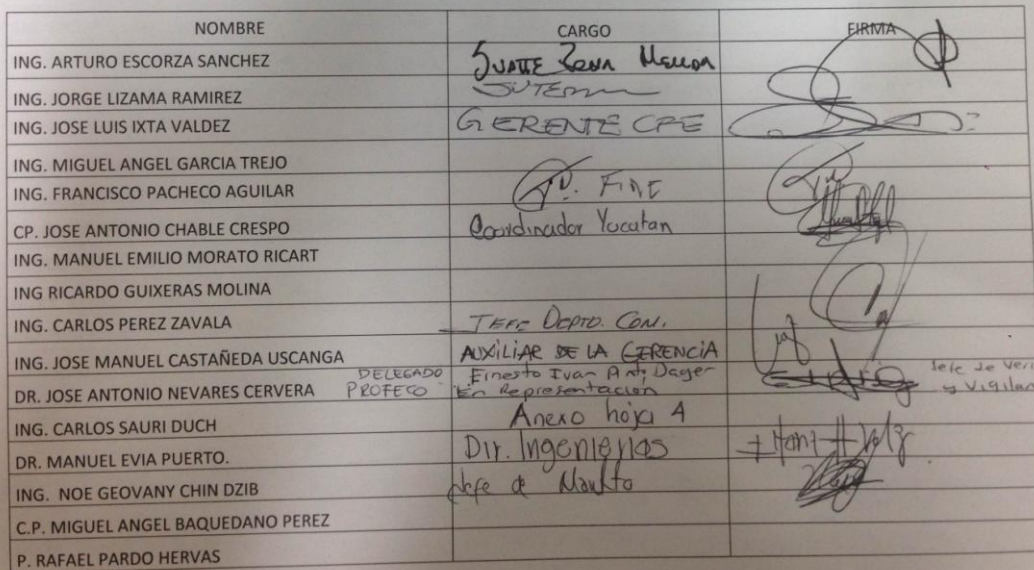 NOMBRE CARGO FIRMA
ING. ARTURO ESCORZA SANCHEZ
ING. JORGE LIZAMA RAMIREZ
ING. JOSE LUIS IXTA VALDEZ GERENTE CFE
ING. MIGUEL ANGEL GARCIA TREJO
ING. FRANCISCO PACHECO AGUILAR FIDE
CP. JOSE ANTONIO CHABLE CRESPO Coordinador Yucatan
ING. MANUEL EMILIO MORATO RICART
ING RICARDO GUIXERAS MOLINA
ING. CARLOS PEREZ ZAVALA JEFE DEPTO. COM.
ING. JOSE MANUEL CASTAÑEDA USCANGA AUXILIAR DE LA GERENCIA
DELEGADO Ernesto Ivan Dager Jefe de Veri
DR. JOSE ANTONIO NEVARES CERVERA PROFECO En Representación y Vigilan
ING. CARLOS SAURI DUCH Anexo hoja 4
DR. MANUEL EVIA PUERTO. Dir. Ingenierías
ING. NOE GEOVANY CHIN DZIB Jefe de Mantto
C.P. MIGUEL ANGEL BAQUEDANO PEREZ
P. RAFAEL PARDO HERVAS